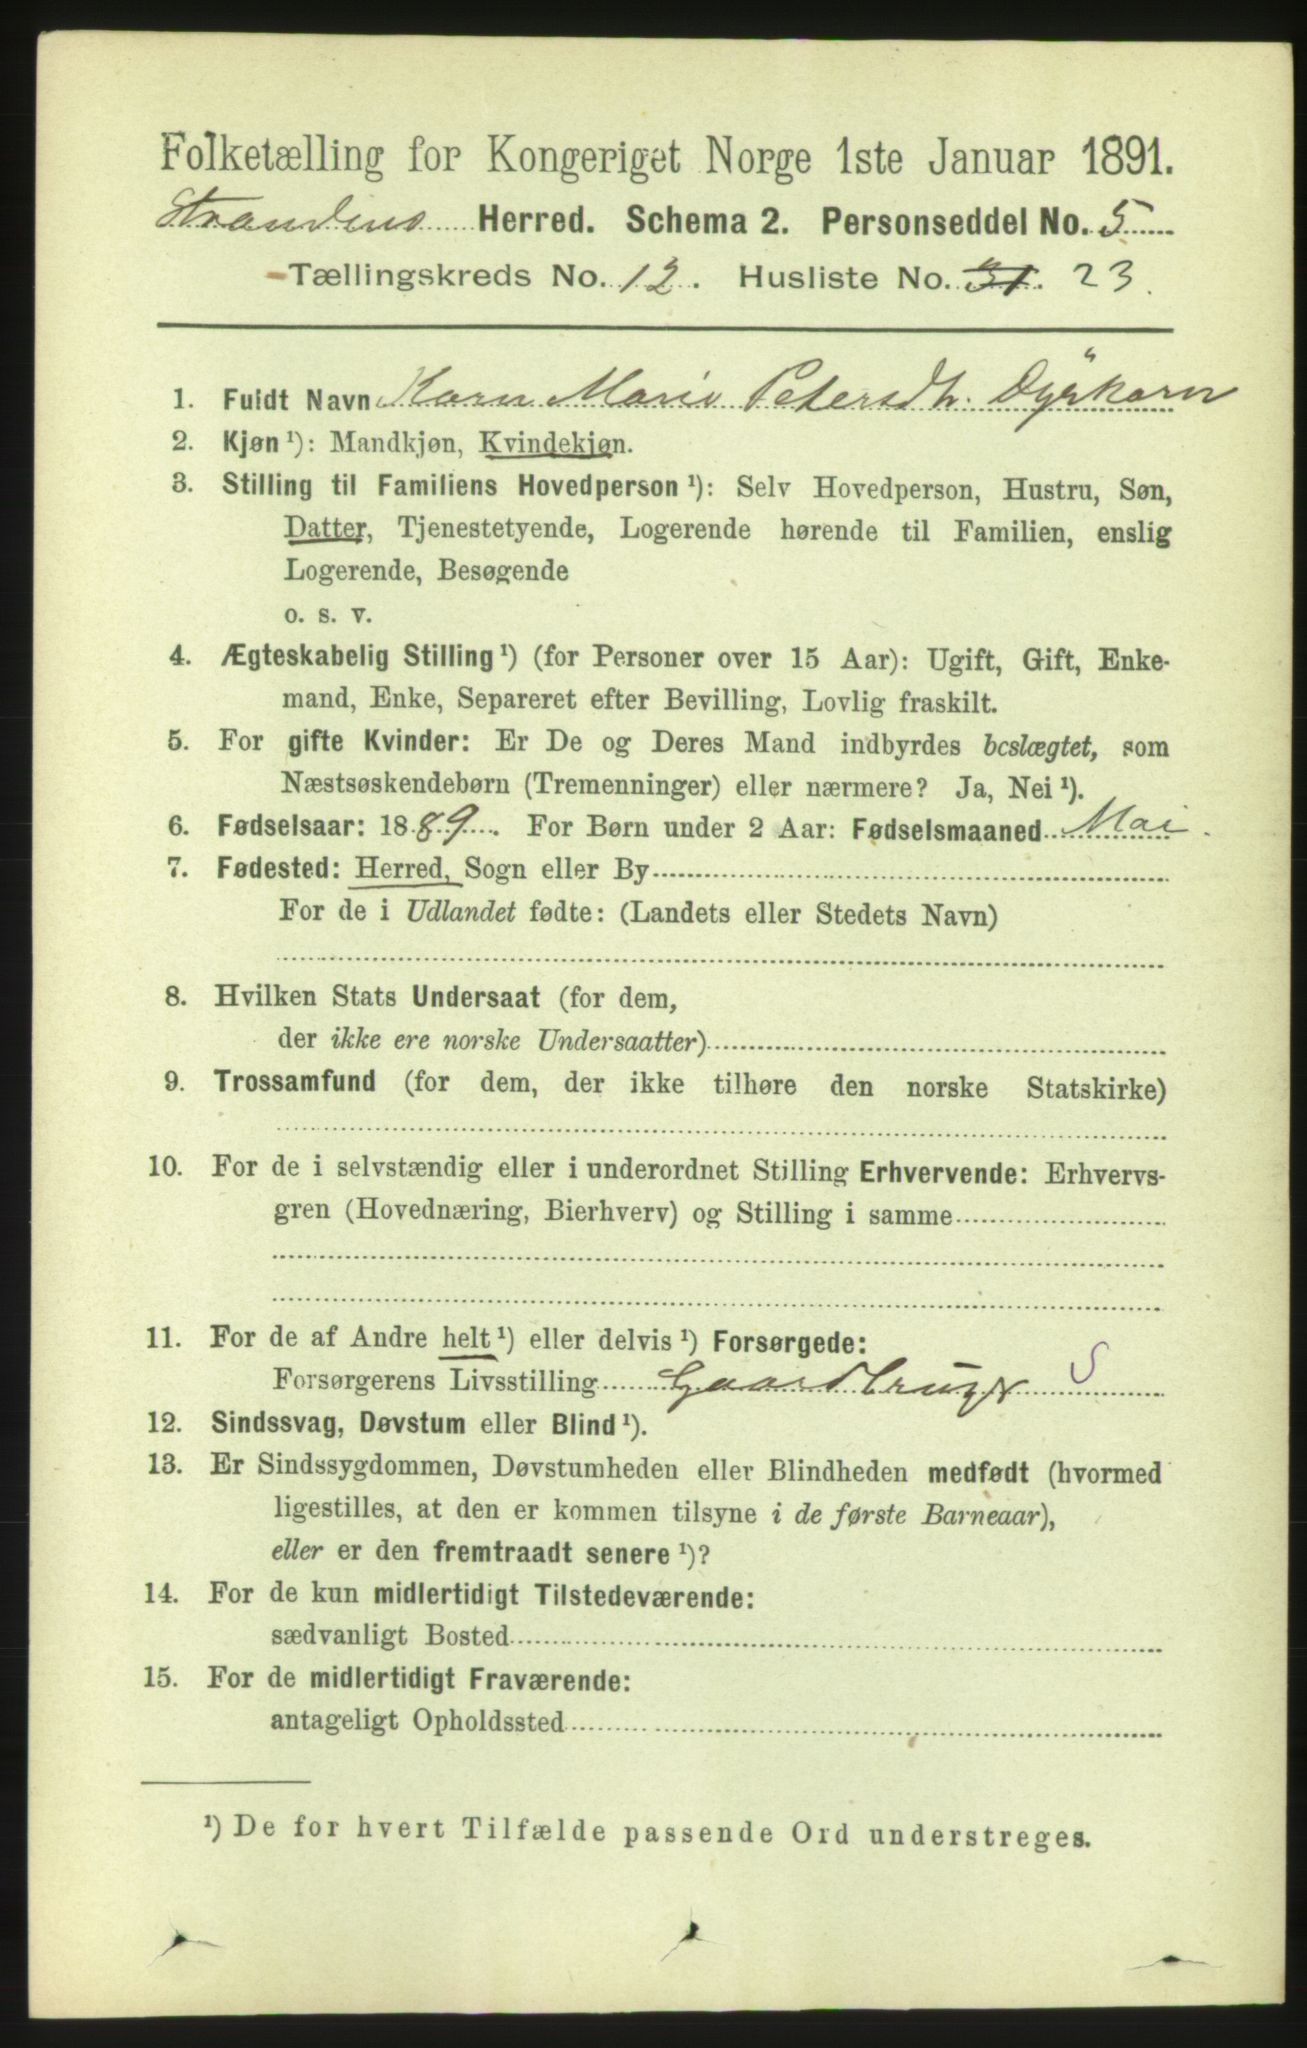 Folketælling for Kongeriget Norge 1ste Januar 1891.
Strandens Herred. Schema 2. Personseddel No. 5
Tællingskreds No. 12. Husliste No. 31. 23.
1. Fuldt Navn Karn Marie Petersdtr. Dyrkorn
2. Kjøn ¹): Mandkjøn, Kvindekjøn.
3. Stilling til Familiens Hovedperson ¹): Selv Hovedperson, Hustru, Søn,
Datter, Tjenestetyende, Logerende hørende til Familien, enslig
Logerende, Besøgende
o. s. v.
4. Ægteskabelig Stilling ¹) (for Personer over 15 Aar): Ugift, Gift, Enke-
mand, Enke, Separeret efter Bevilling, Lovlig fraskilt.
5. For gifte Kvinder: Er De og Deres Mand indbyrdes beslægtet, som
Næstsøskendebørn (Tremenninger) eller nærmere? Ja, Nei ¹).
6. Fødselsaar: 1889. For Børn under 2 Aar: Fødselsmaaned Mai.
7. Fødested: Herred, Sogn eller By
For de i Udlandet fødte: (Landets eller Stedets Navn)
8. Hvilken Stats Undersaat (for dem,
der ikke ere norske Undersaatter)
9. Trossamfund (for dem, der ikke tilhøre den norske Statskirke)
10. For de i selvstændig eller i underordnet Stilling Erhvervende: Erhvervs-
gren (Hovednæring, Bierhverv) og Stilling i samme
11. For de af Andre helt ¹) eller delvis ¹) Forsørgede:
Forsørgerens Livsstilling Gaardbruger S
12. Sindssvag, Døvstum eller Blind ¹).
13. Er Sindssygdommen, Døvstumheden eller Blindheden medfødt (hvormed
ligestilles, at den er kommen tilsyne i de første Barneaar),
eller er den fremtraadt senere ¹)?
14. For de kun midlertidigt Tilstedeværende:
sædvanligt Bosted
15. For de midlertidigt Fraværende:
antageligt Opholdssted
¹) De for hvert Tilfælde passende Ord understreges.